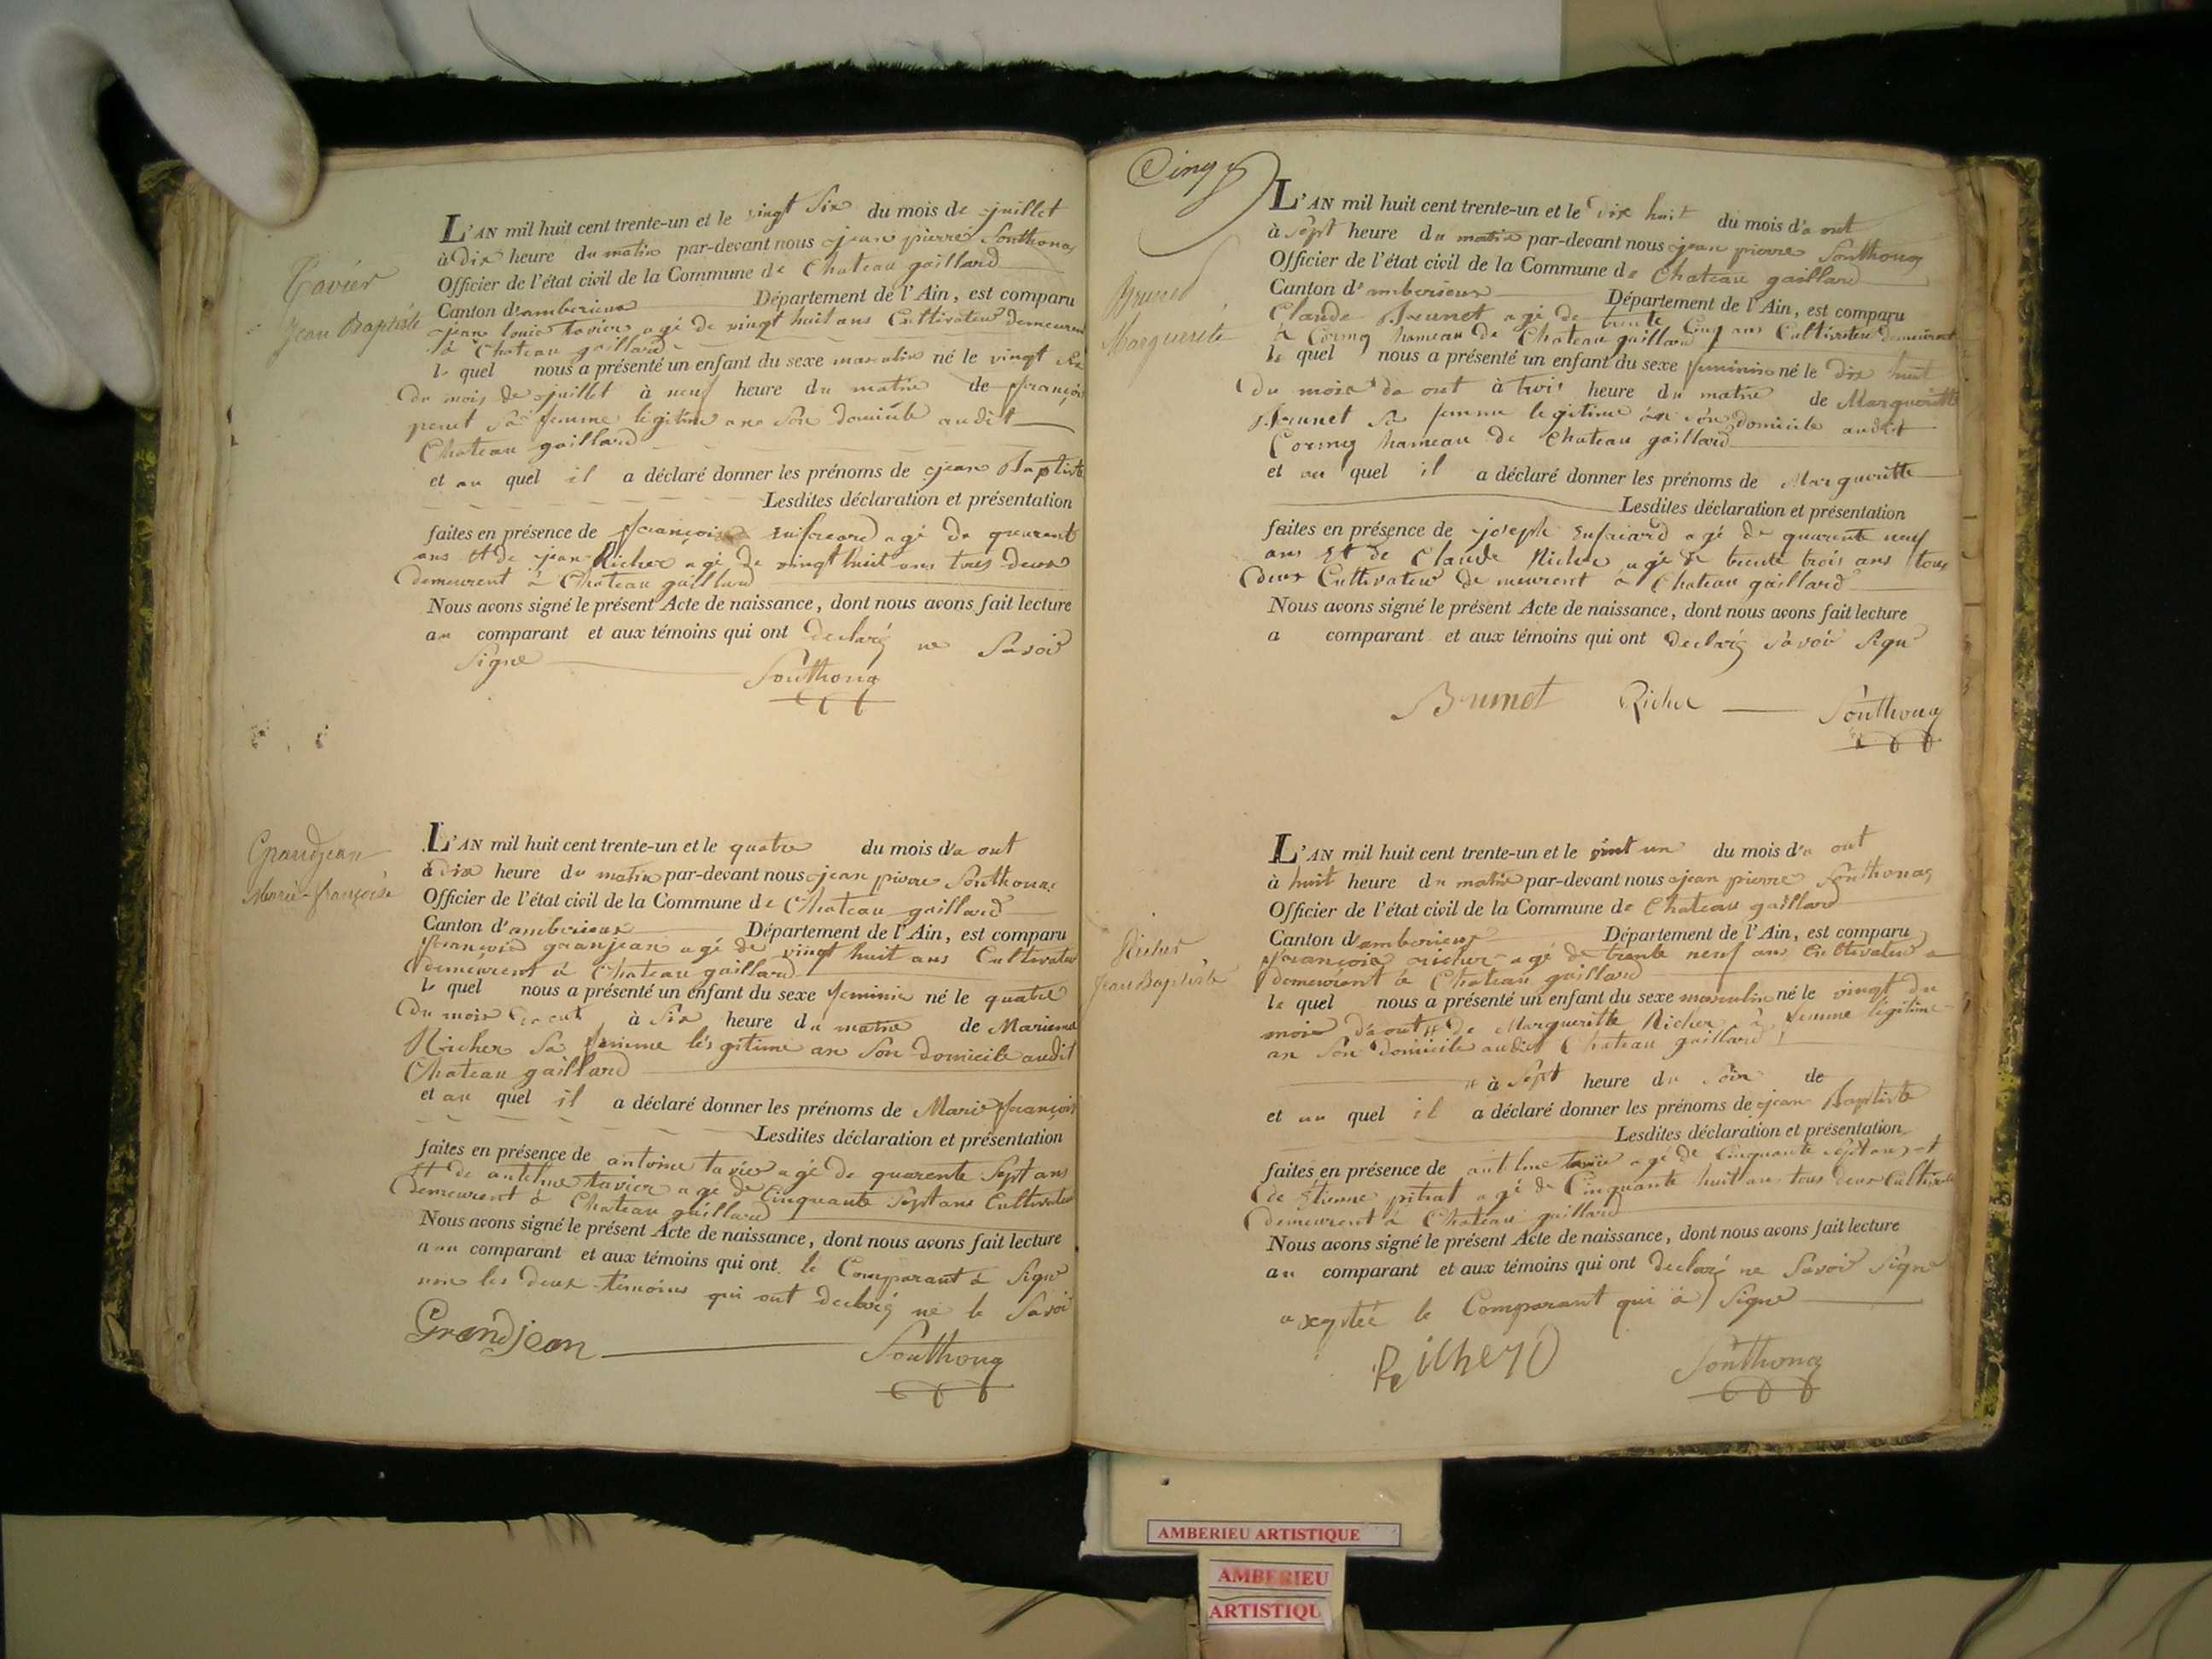 Tavier
Jean Baptiste
L'AN mil huit cent trente-un et le vingt six du mois de juillet
à dix heure du matin par-devant nous jean pierre Southonax
Officier de l'état civil de la Commune de Chateau gaillard
Canton d'amberieux Département de l'Ain, est comparu
jean louis tavier agé de vingt huit ans Cultivateur demeurent
à Chateau gaillard
le quel nous a présenté un enfant du sexe masculin né le vingt six
du mois de juillet à neuf heure du matin de françoi
sa femme legitime an son domicile audit
Chateau gaillard
et au quel il a déclaré donner les prénoms de jean Baptiste
Lesdites déclaration et présentation
faites en présence de françois agé de quarent
ans et de jean Richer agé de vingt huit ans tous deux
demeurent à Chateau gaillard
Nous avons signé le présent Acte de naissance, dont nous avons fait lecture
au comparant et aux témoins qui ont declaré ne Savoir
Signe
Southonax
Grandjean
Marie-françoise
L'AN mil huit cent trente-un et le quatre du mois d'a out
à dix heure du matin par-devant nous jean pierre Southonax
Officier de l'état civil de la Commune de Chateau gaillard
Canton d'amberieux Département de l'Ain, est comparu
françois granjean agé de vingt huit ans Cultivateur
demeurent à Chateau gaillard
le quel nous a présenté un enfant du sexe feminin né le quatre
du mois à six heure du matin de
Richer sa femme lésgitime an son domicile audit
Chateau gaillard
et au quel il a déclaré donner les prénoms de Marie françois
Lesdites déclaration et présentation
faites en présence de antoine tavier agé de quarente Sept ans
et de antelme tavier agé de Cinquante Sept ans Cultivateur
demeurent à Chateau gaillard
Nous avons signé le présent Acte de naissance, dont nous avons fait lecture
au comparant et aux témoins qui ont le Comparant à Signe
non les deux temoins qui ont declaré ne le Savoir
Grandjean Southonax
Cinq
Brunet
Marguerite
L'AN mil huit cent trente-un et le dix huit du mois d'a out
à Sept heure du matin par-devant nous jean pierre Southonax
Officier de l'état civil de la Commune de Chateau gaillard
Canton d'amberieux Département de l'Ain, est comparu
Claude Brunet agé de trente Cinq ans Cultivateur demeurent
à Cormoz hameau de Chateau gaillard
le quel nous a présenté un enfant du sexe feminin né le dix huit
du mois da out à trois heure du matin de Margueritte
Brunet sa femme legitime an son domicile audit
Cormoz hameau de Chateau gaillard
et au quel il a déclaré donner les prénoms de Margueritte
Lesdites déclaration et présentation
faites en présence de joseph agé de quarente neuf
ans et de Claude Richer agé de trente trois ans tous
deux Cultivateur demeurent à Chateau gaillard
Nous avons signé le présent Acte de naissance, dont nous avons fait lecture
a comparant et aux témoins qui ont declaré savoir Sign
Brunet Richer Southonax
Richer
Jean Baptiste
L'AN mil huit cent trente-un et le vint un du mois d'a out
à huit heure du matin par-devant nous jean pierre Southonax
Officier de l'état civil de la Commune de Chateau gaillard
Canton d'amberieux Département de l'Ain, est comparu
françois richer agé de trente neuf ans Cultivateur
demeurent à Chateau gaillard
le quel nous a présenté un enfant du sexe masculin né le vingt du
mois d'aout # de Margueritte Richer sa femme légitime
an son domicile audit Chateau gaillard
# à Sept heure du Soir de
et au quel il a déclaré donner les prénoms de jean Baptiste
Lesdites déclaration et présentation
faites en présence de antelme tavier agé de Cinquante sept ans et
de Etienne pitrat agé de Cinquante huit ans tous deux Cultivateur
demeurent à Chateau gaillard
Nous avons signé le présent Acte de naissance, dont nous avons fait lecture
au comparant et aux témoins qui ont declaré ne Savoir Signe
le Comparant qui à Signe
Richer Southonax
AMBERIEU ARTISTIQUE
AMBERIEU
ARTISTIQU